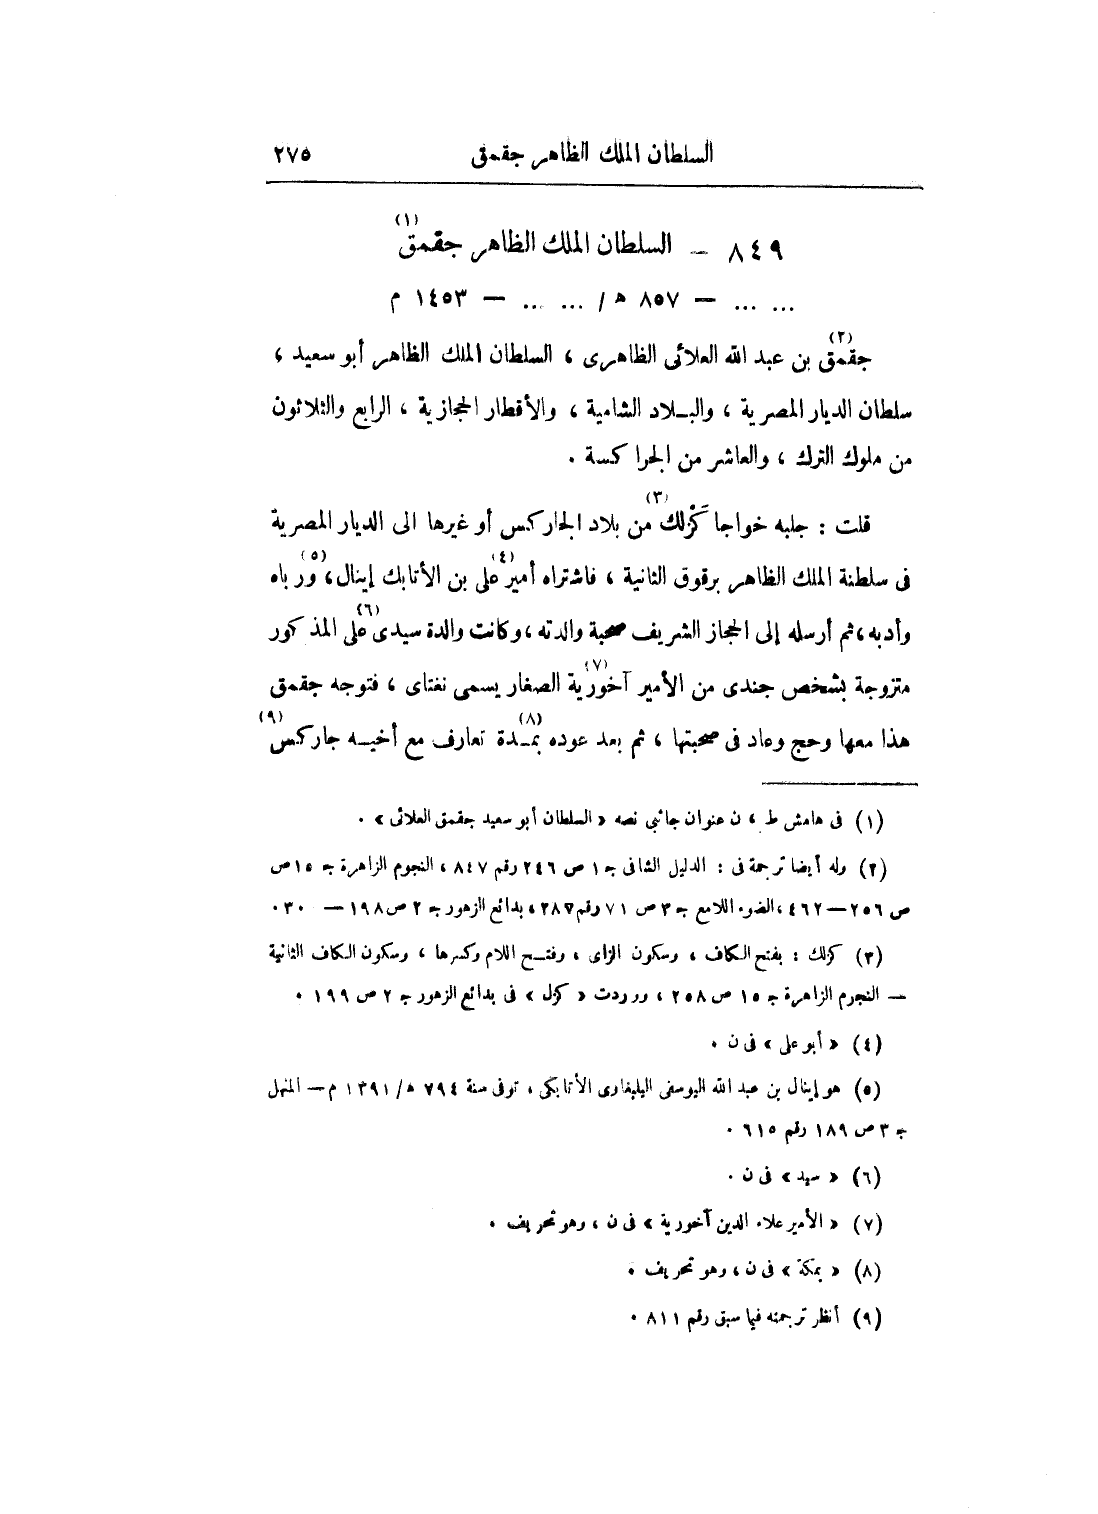 السلطان الملك الظاهر جقمق ٢٧٥
٨٤٩ – السلطان الملك الظاهر جقمق (١)
... ... – ٨٥٧ ه‍/ ... ... – ١٤٥٣ م
جقمق (٢) بن عبد الله العلائى الظاهرى ، السلطان الملك الظاهر أبو سعيد ،
سلطان الديار المصرية ، والبلاد الشامية ، والأقطار الحجازية ، الرابع والثلاثون
من ملوك الترك ، والعاشر من الجراكسة .
قلت : جلبه خواجا كَزْلك (٣) من بلاد الجاركس أو غيرها الى الديار المصرية
فى سلطنة الملك الظاهر برقوق الثانية ، فاشتراه أمير (٤) على بن الأتابك إينال (٥)، ورباه
وأدبه، ثم أرسله إلى الحجاز الشريف صحبة والدته ، وكانت والدة سيدى (٦) على المذكور
متزوجة بشخص جندى من الأمير آخورية (٧) الصغار يسمى نغتاى ، فتوجه جقمق
هذا معها وحج وعاد فى صحبتها ، ثم بعد عوده بمدة (٨) تعارف مع أخيه جاركس (٩)
(١) فى هامش ط ، ن عنوان جانبى نصه « السلطان أبو سعيد جقمق العلائى » .
(٢) وله أيضا ترجمة فى : الدليل الشافى ج١ ص ٢٤٦ رقم ٨٤٧ ، النجوم الزاهرة ج ١٥ ص
ص ٢٥٦ – ٤٦٢ ، الضوء اللامع ج ٣ ص ٧١ رقم ٢٨٧ ، بدائع الزهور ج ٢ ص ١٩٨ – ٣٠٠ .
(٣) كزلك : بفتح الكاف ، وسكون الزاى ، وفتح اللام وكسرها ، وسكون الكاف الثانية
– النجوم الزاهرة ج ١٥ ص ٢٥٨ ، ووردت « كزل » فى بدائع الزهور ج ٢ ص ١٩٩ .
(٤) « أبو على » فى ن .
(٥) هو إينال بن عبد الله اليوسفى اليلبغاوى الأتابكى ، توفى سنة ٧٩٤ ه‍/ ١٣٩١ م – المنهل
ج ٣ ص ١٨٩ رقم ٦١٥ .
(٦) « سيد » فى ن .
(٧) « الأمير علاء الدين آخورية » فى ن ، وهو تحريف .
(٨) « بمكة » فى ن ، وهو تحريف .
(٩) أنظر ترجمته فيما سبق رقم ٨١١ .